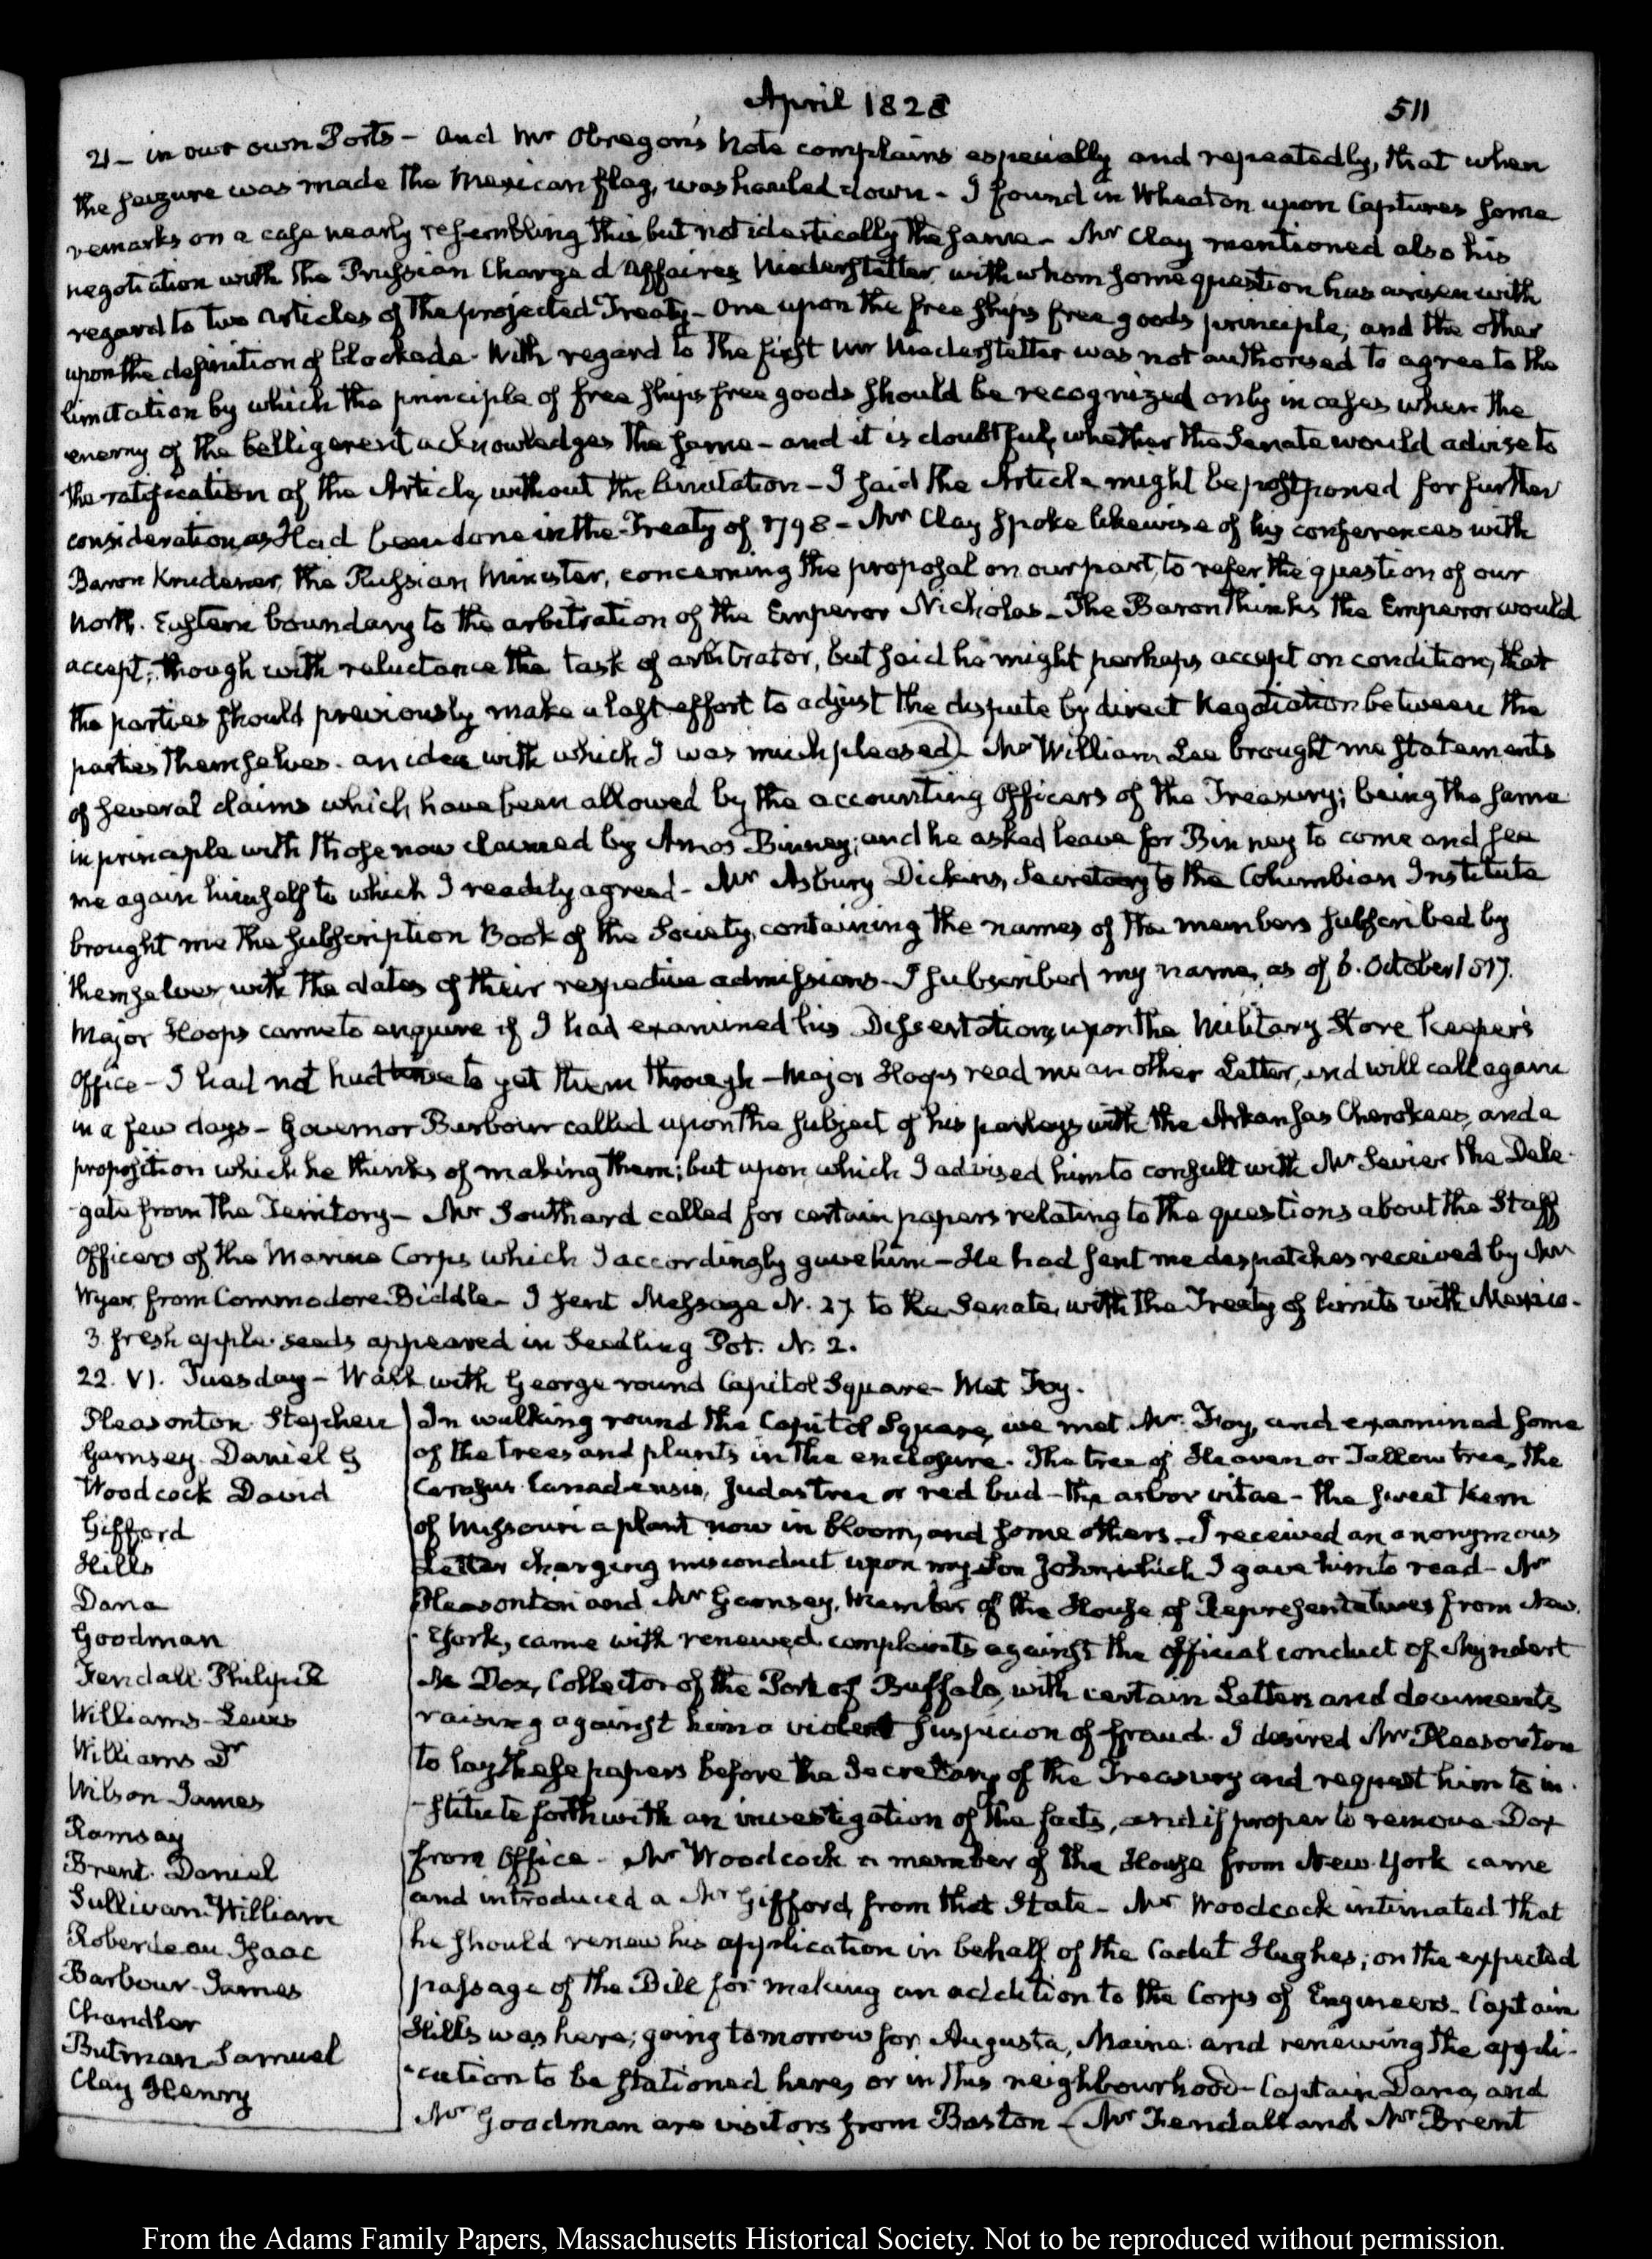 April 1828
511
21 – in our own Ports – and Mr Obregon's Note complains especially and repeatedly, that when
the seizure was made the Mexican flag, was hauled down – I found in Wheaton upon Captures some
remarks on a case nearly resembling this but not identically the same – Mr Clay mentioned also his
negotiation with the Prussian Charge d'Affaires Niederstetter with whom some question has arisen with
regard to two Articles of the projected Treaty – One upon the free ships free goods principle, and the other
upon the definition of blockade. With regard to the first Mr Niederstetter was not authorised to agree to the
limitation by which the principle of free ships free goods should be recognized only in cases when the
enemy of the belligerent acknowledges the same – and it is doubtful, whether the Senate would advise to
the ratification of the Article, without the limitation – I said the Article might be postponed for further
consideration, as Had been done in the Treaty of 1798 – Mr Clay spoke likewise of his conferences with
Baron Krudener, the Russian Minister, concerning the proposal on our part, to refer the question of our
North-Eastern boundary to the arbitration of the Emperor Nicholas – The Baron thinks the Emperor would
accept, though with reluctance the task of arbitrator, but said he might perhaps accept on condition, that
the parties should previously make a last effort to adjust the dispute by direct Negotiation between the
parties themselves. an idea with which I was much pleased) – Mr William Lee brought me statements
of several claims which have been allowed by the accounting Officers of the Treasury; being the same
in principle with those now claimed by Amos Binney; and he asked leave for Binney to come and see
me again himself to which I readily agreed – Mr Asbury Dickins, Secretary to the Columbian Institute
brought me the subscription Book of the Society, containing the names of the members subscribed by
themselves, with the dates of their respective admissions – I subscribed my name, as of 6. October 1817.
Major Hoops came to enquire if I had examined his Dissertations, upon the Military Store keeper's
Office – I had not had time to get them through – Major Hoops read me another Letter, and will call again
in a few days – Governor Barbour called upon the subject of his parleys with the Arkansas Cherokees, and a
proposition which he thinks of making them; but upon which I advised him to consult with Mr Sevier the Dele-
-gate from the Territory – Mr Southard called for certain papers relating to the questions about the Staff
Officers of the Marine Corps which I accordingly gave him – He had sent me despatches received by Mr
Wyer from Commodore Biddle – I sent Message N. 27 to the Senate, with the Treaty of limits with Mexico.
3 fresh apple-seeds appeared in Seedling Pot. N. 2.
22. VI. Tuesday – Walk with George round Capitol Square – Met Foy.
Pleasonton Stephen
Garnsey. Daniel G
Woodcock David
Gifford
Hills
Dana
Goodman
Fendall Philip R
Williams – Lewis
Williams Dr
Wilson James
Ramsay
Brent. Daniel
Sullivan William
Roberdeau Isaac
Barbour – James
Chandler
Butman Samuel
Clay Henry
In walking round the Capitol Square, we met Mr. Foy, and examined some
of the trees and plants in the enclosure. The tree of Heaven or Tallow tree, the
Canadensis, Judas tree or red bud – the arbor vitae – the sweet
of Missouri a plant now in bloom, and some others – I received an anonymous
Letter charging misconduct upon my Son John, which I gave him to read – Mr
Pleasonton and Mr Garnsey, Member of the House of Representatives from New-
-York, came with renewed complaints against the official conduct of Myndert
M. Dox, Collector of the Port of Buffalo, with certain Letters and documents
raising against him a violent suspicion of fraud. I desired Mr Pleasonton
to lay these papers before the Secretary of the Treasury and request him to in-
-stitute forthwith an investigation of the facts, and if proper to remove Dox
from Office – Mr Woodcock a member of the House from New-York came
and introduced a Mr Gifford, from that State – Mr Woodcock intimated that
he should renew his application in behalf of the Cadet Hughes; on the expected
passage of the Bill for making an addition to the Corps of Engineers – Captain
Hills was here; going tomorrow for Augusta, Maine: and renewing the appli-
-cation to be stationed here, or in this neighbourhood – Captain Dana, and
Mr Goodman are visitors from Boston – (Mr Fendall and Mr Brent
From the Adams Family Papers, Massachusetts Historical Society. Not to be reproduced without permission.